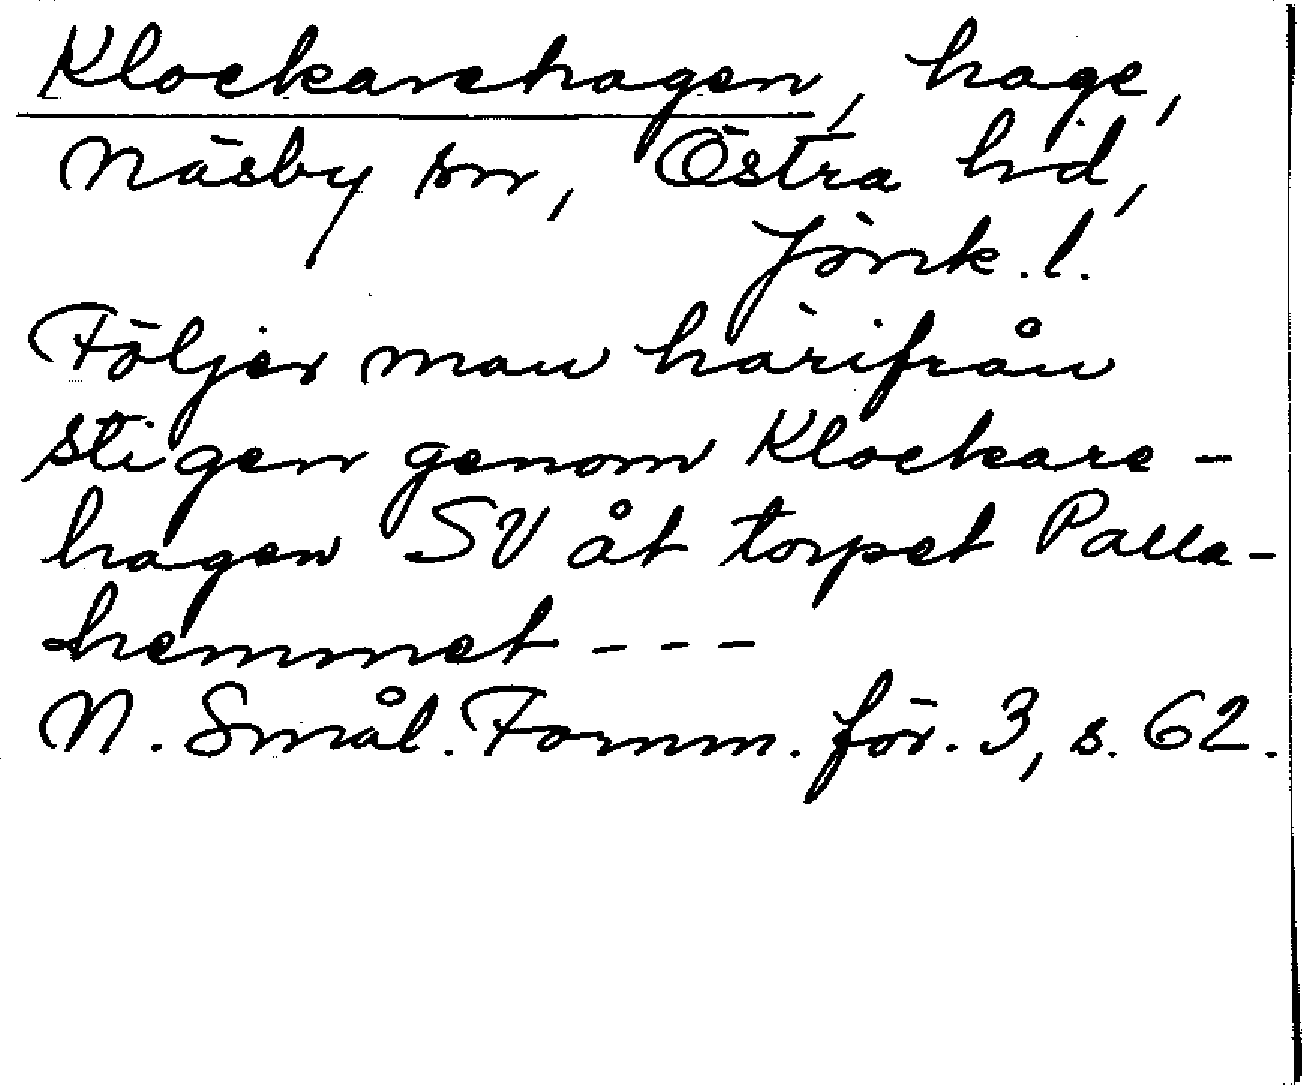 Klockarehagen, hage,
Näsby sn, Östra hd,
Jönk. l.
Följer man härifrån
stigen genom Klockare-
hagen SV åt torpet Palla-
hemmet - - -
N. Smål. Fornm. för. 3, s. 62.